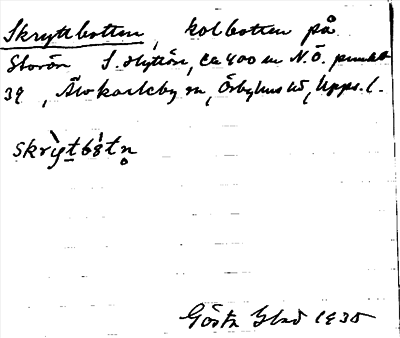 Skryttbotten, kolbotten på
Storön S. Hyttön, ca 400 m N.Ö. punkt
39, Älvkarleby sn, Örbyhus hd, Upps. l.
skrỳtbòtn̥
Gösta 1935